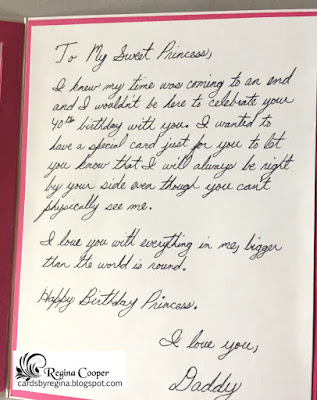 To My Sweet Princess,
I knew my time was coming to an end
and I wouldn't be here to celebrate your
40th birthday with you. I wanted to
have a special card just for you to let
you know that I will always be right
by your side even though you can't
physically see me.
I love you with everything in me, bigger
than the world is round.
Happy Birthday Princess.
I love you,
Daddy
Regina Cooper
cardsbyregina.blogspot.com